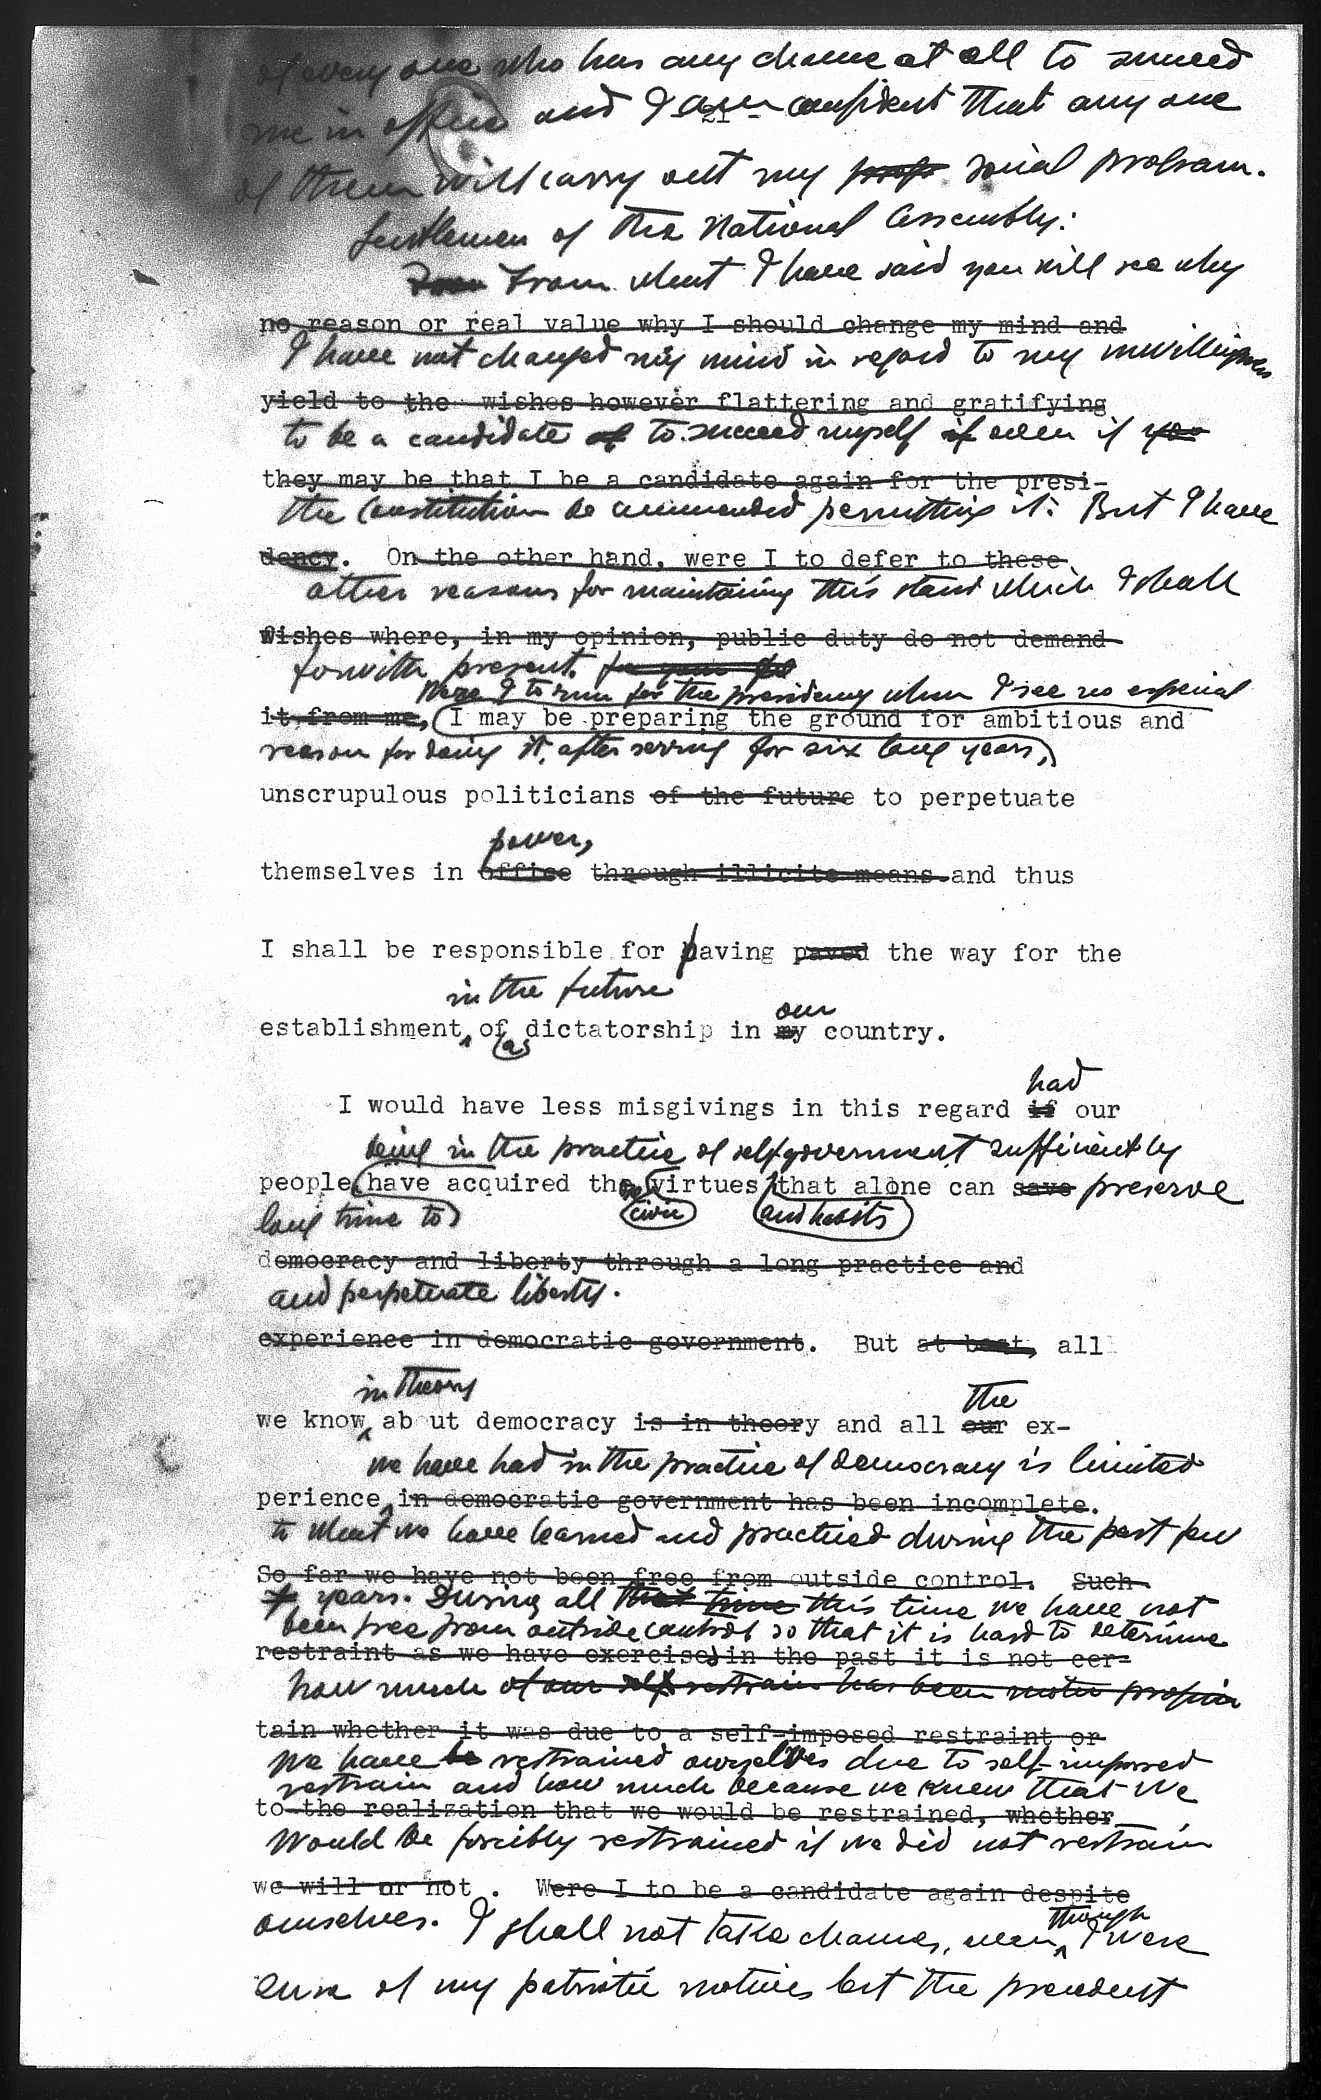 of every one who has any chance at all to succeed
- 21 -
me in office and I am confident that any one
of them will carry out my prog social program.
Gentlemen of the National Assembly:
From From what I have said you will see why
no reason or real value why I should change my mind and
I have not changed my mind in regard to my unwillingness
yield to the wishes however flattering and gratifying
to be a candidate of to succeed myself if even if you
they may be that I be a candidate again for the presi-
the Constitution be ammended permitting it. But I have
dency. On the other hand, were I to defer to these
other reasons for maintaining this stand which I shall
wishes where, in my opinion, public duty do not demand
forwith present.
Were I to run for the presidency when I see no especial
it from me, I may be preparing the ground for ambitious and
reason for doing it, after serving for six long years,
unscrupulous politicians of the future to perpetuate
power,
themselves in office through illicite means and thus
I shall be responsible for paving paved the way for the
in the future
our
establishment of dictatorship in my country.
a
had
I would have less misgivings in this regard if our
being in the practice of selfgovernment sufficiently
people have acquired the virtues that alone can save preserve
long time to
civic
and habits
democracy and liberty through a long practice and
and perpetuate liberty.
experience in democratic government. But at best, all
in theory
the
we know about democracy is in theory and all our ex-
we have had in the practice of democracy is limited
perience in democratic government has been incomplete.
to what we have learned and practiced during the past few
So far we have not been free from outside control. Such
years. During all that time this time we have not
been free from outside control so that it is hard to determine
restraint as we have exercised in the past it is not cer-
how much of our self restrain has been
tain whether it was due to a self-imposed restraint or
we have be restrained ourselves due to self-imposed
restrain and how much because we knew that we
to the realization that we would be restrained, whether
would be forcibly restrained if we did not restrain
we will or not. Were I to be a candidate again despite
though
ourselves. I shall not take chances, even I were
sure of my patriotic motives lest the precedent